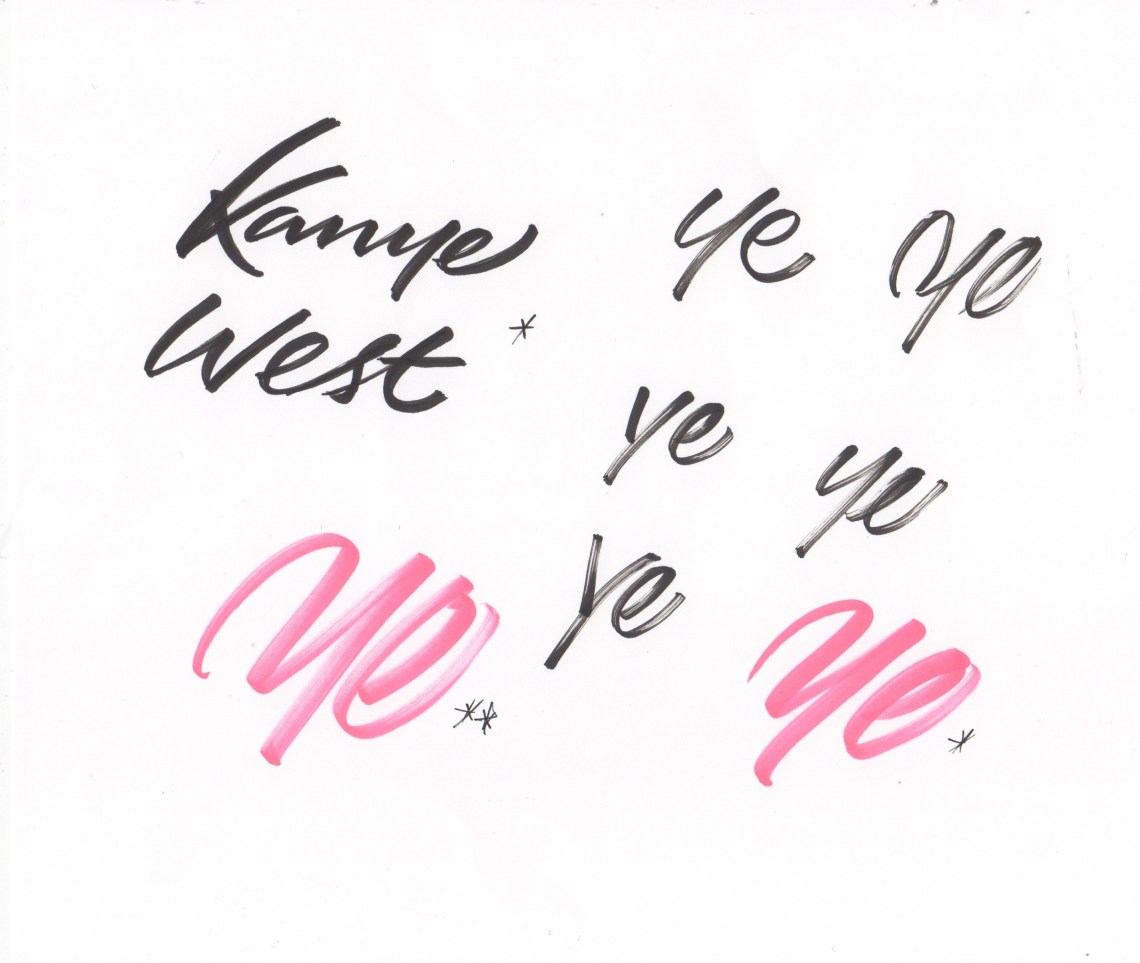 Kanye
West *
ye ye
ye ye
ye
ye **
ye *